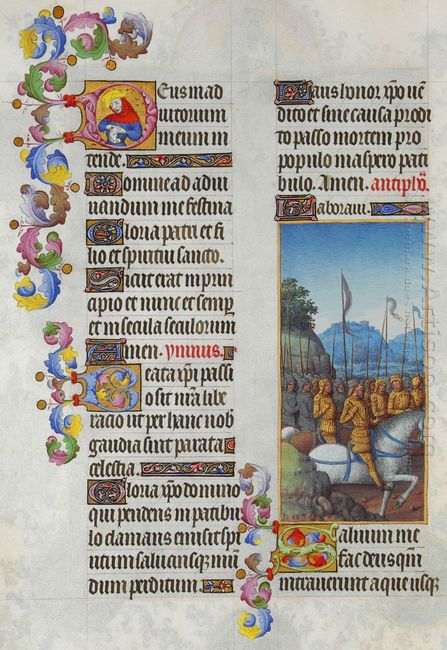 Deus in ad
iutorium
meum in
tende.
Domine ad adiu
uandum me festina
Gloria patri et fi
lio et spiritui sancto.
Sicut erat in prin
cipio et nunc et semp
et in secula seculorum
Amen. ymnus.
Beata xpi passi
o sit nra libe
racio ut per hanc nob
gaudia sint parata
celestia.
Gloria xpo domino
qui pendens in patibu
lo clamans emisit spi
ritum saluans mun
dum perditum.
Laus honor xpo uen
dito et sine causa prodi
to passo mortem pro
populo in aspero pati
bulo. Amen. antiph
Laboraui.
Saluum me
fac deus qm
intrauerunt aque usq